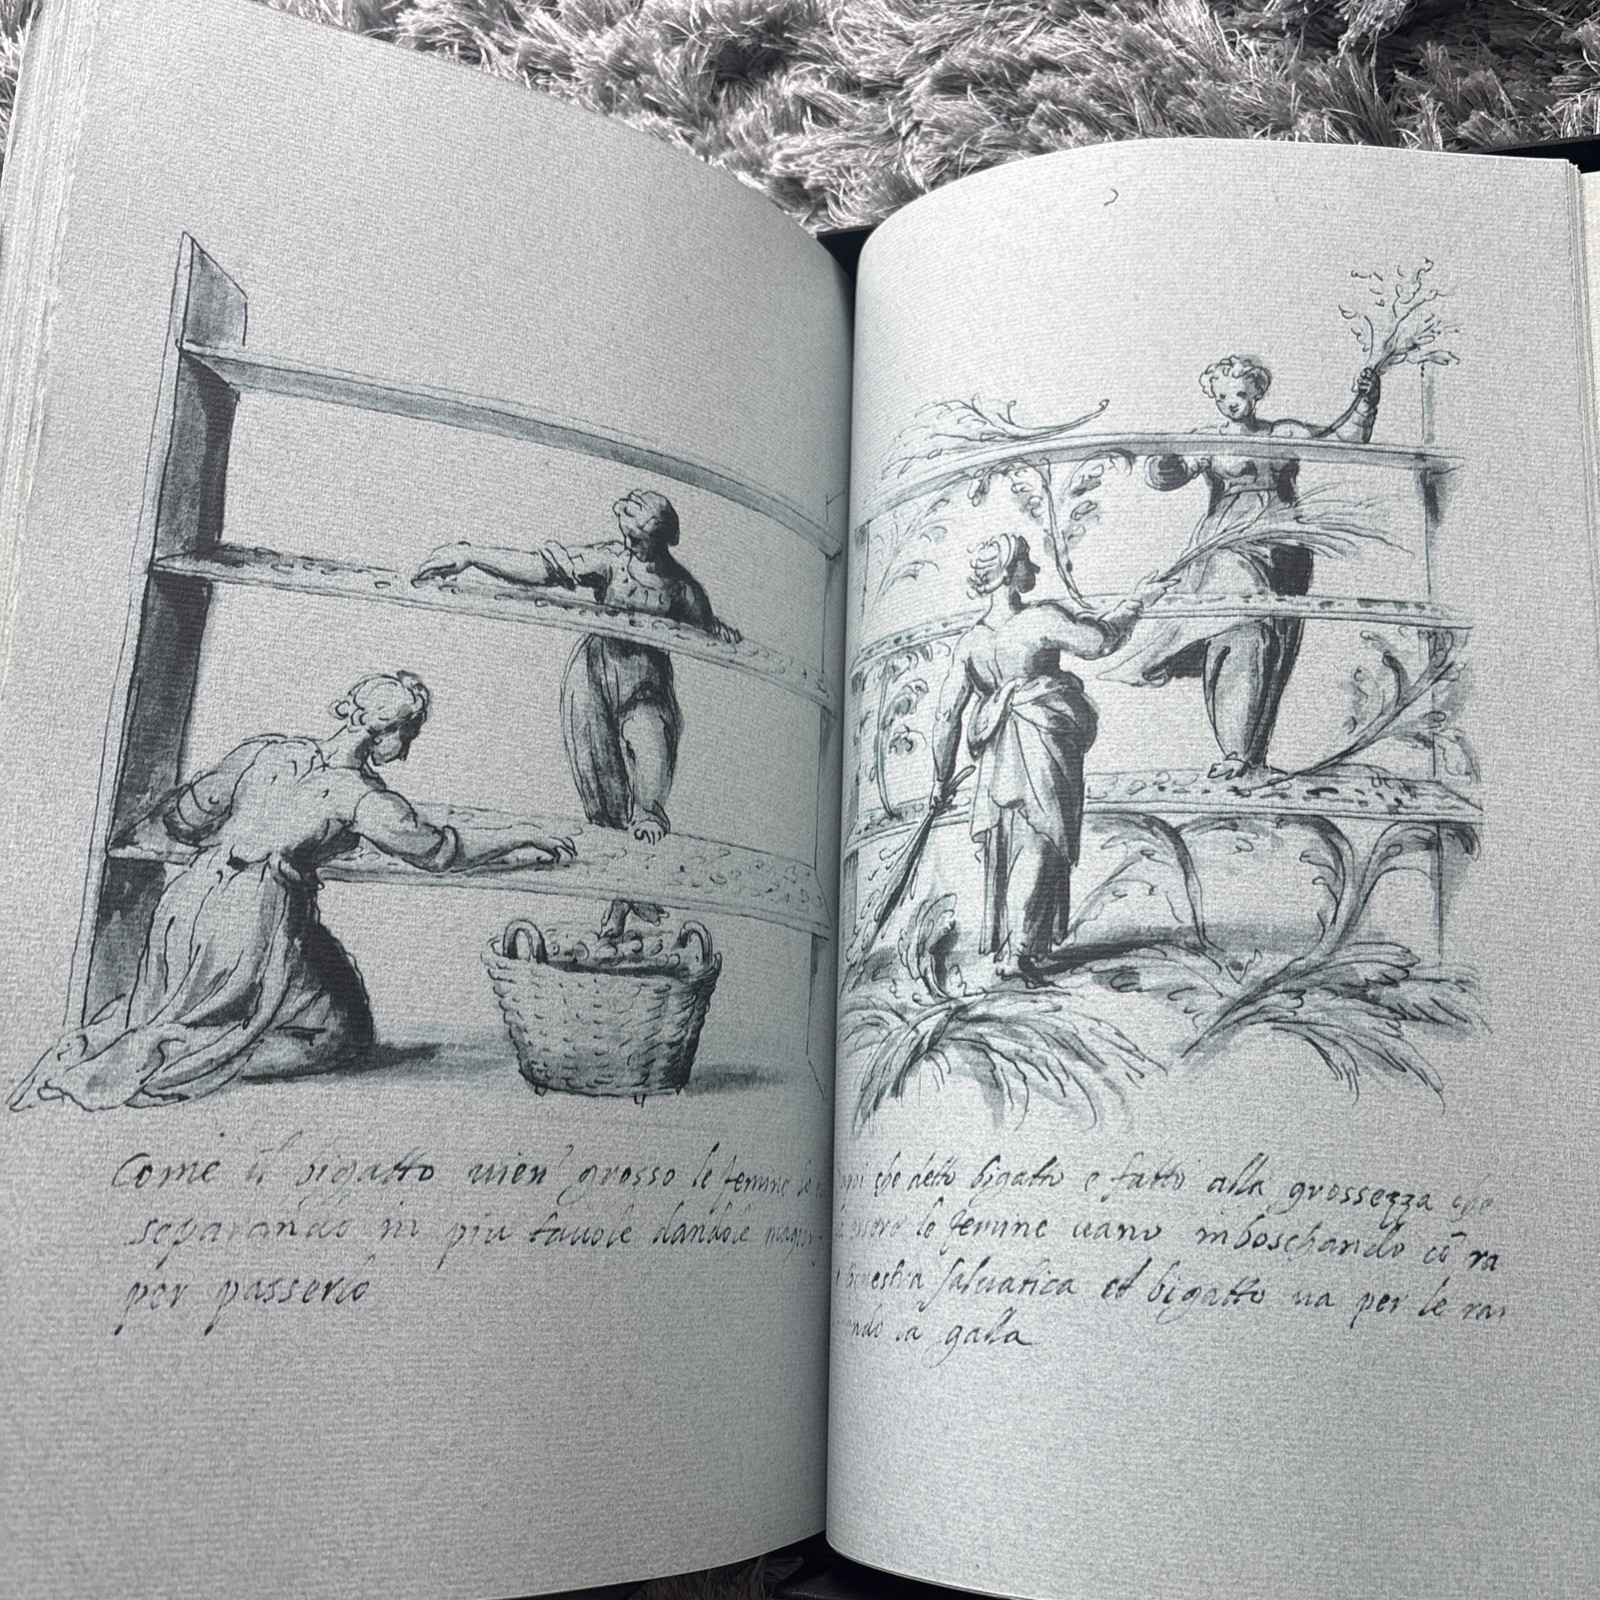 Come il bigatto uien' grosso le femine le
separando in piu tauole dandole
per passerlo
che detto bigatto e fatto alla grossezza che
le femine uano inboschando cō ra
saluatica et bigatto ua per le
la galla